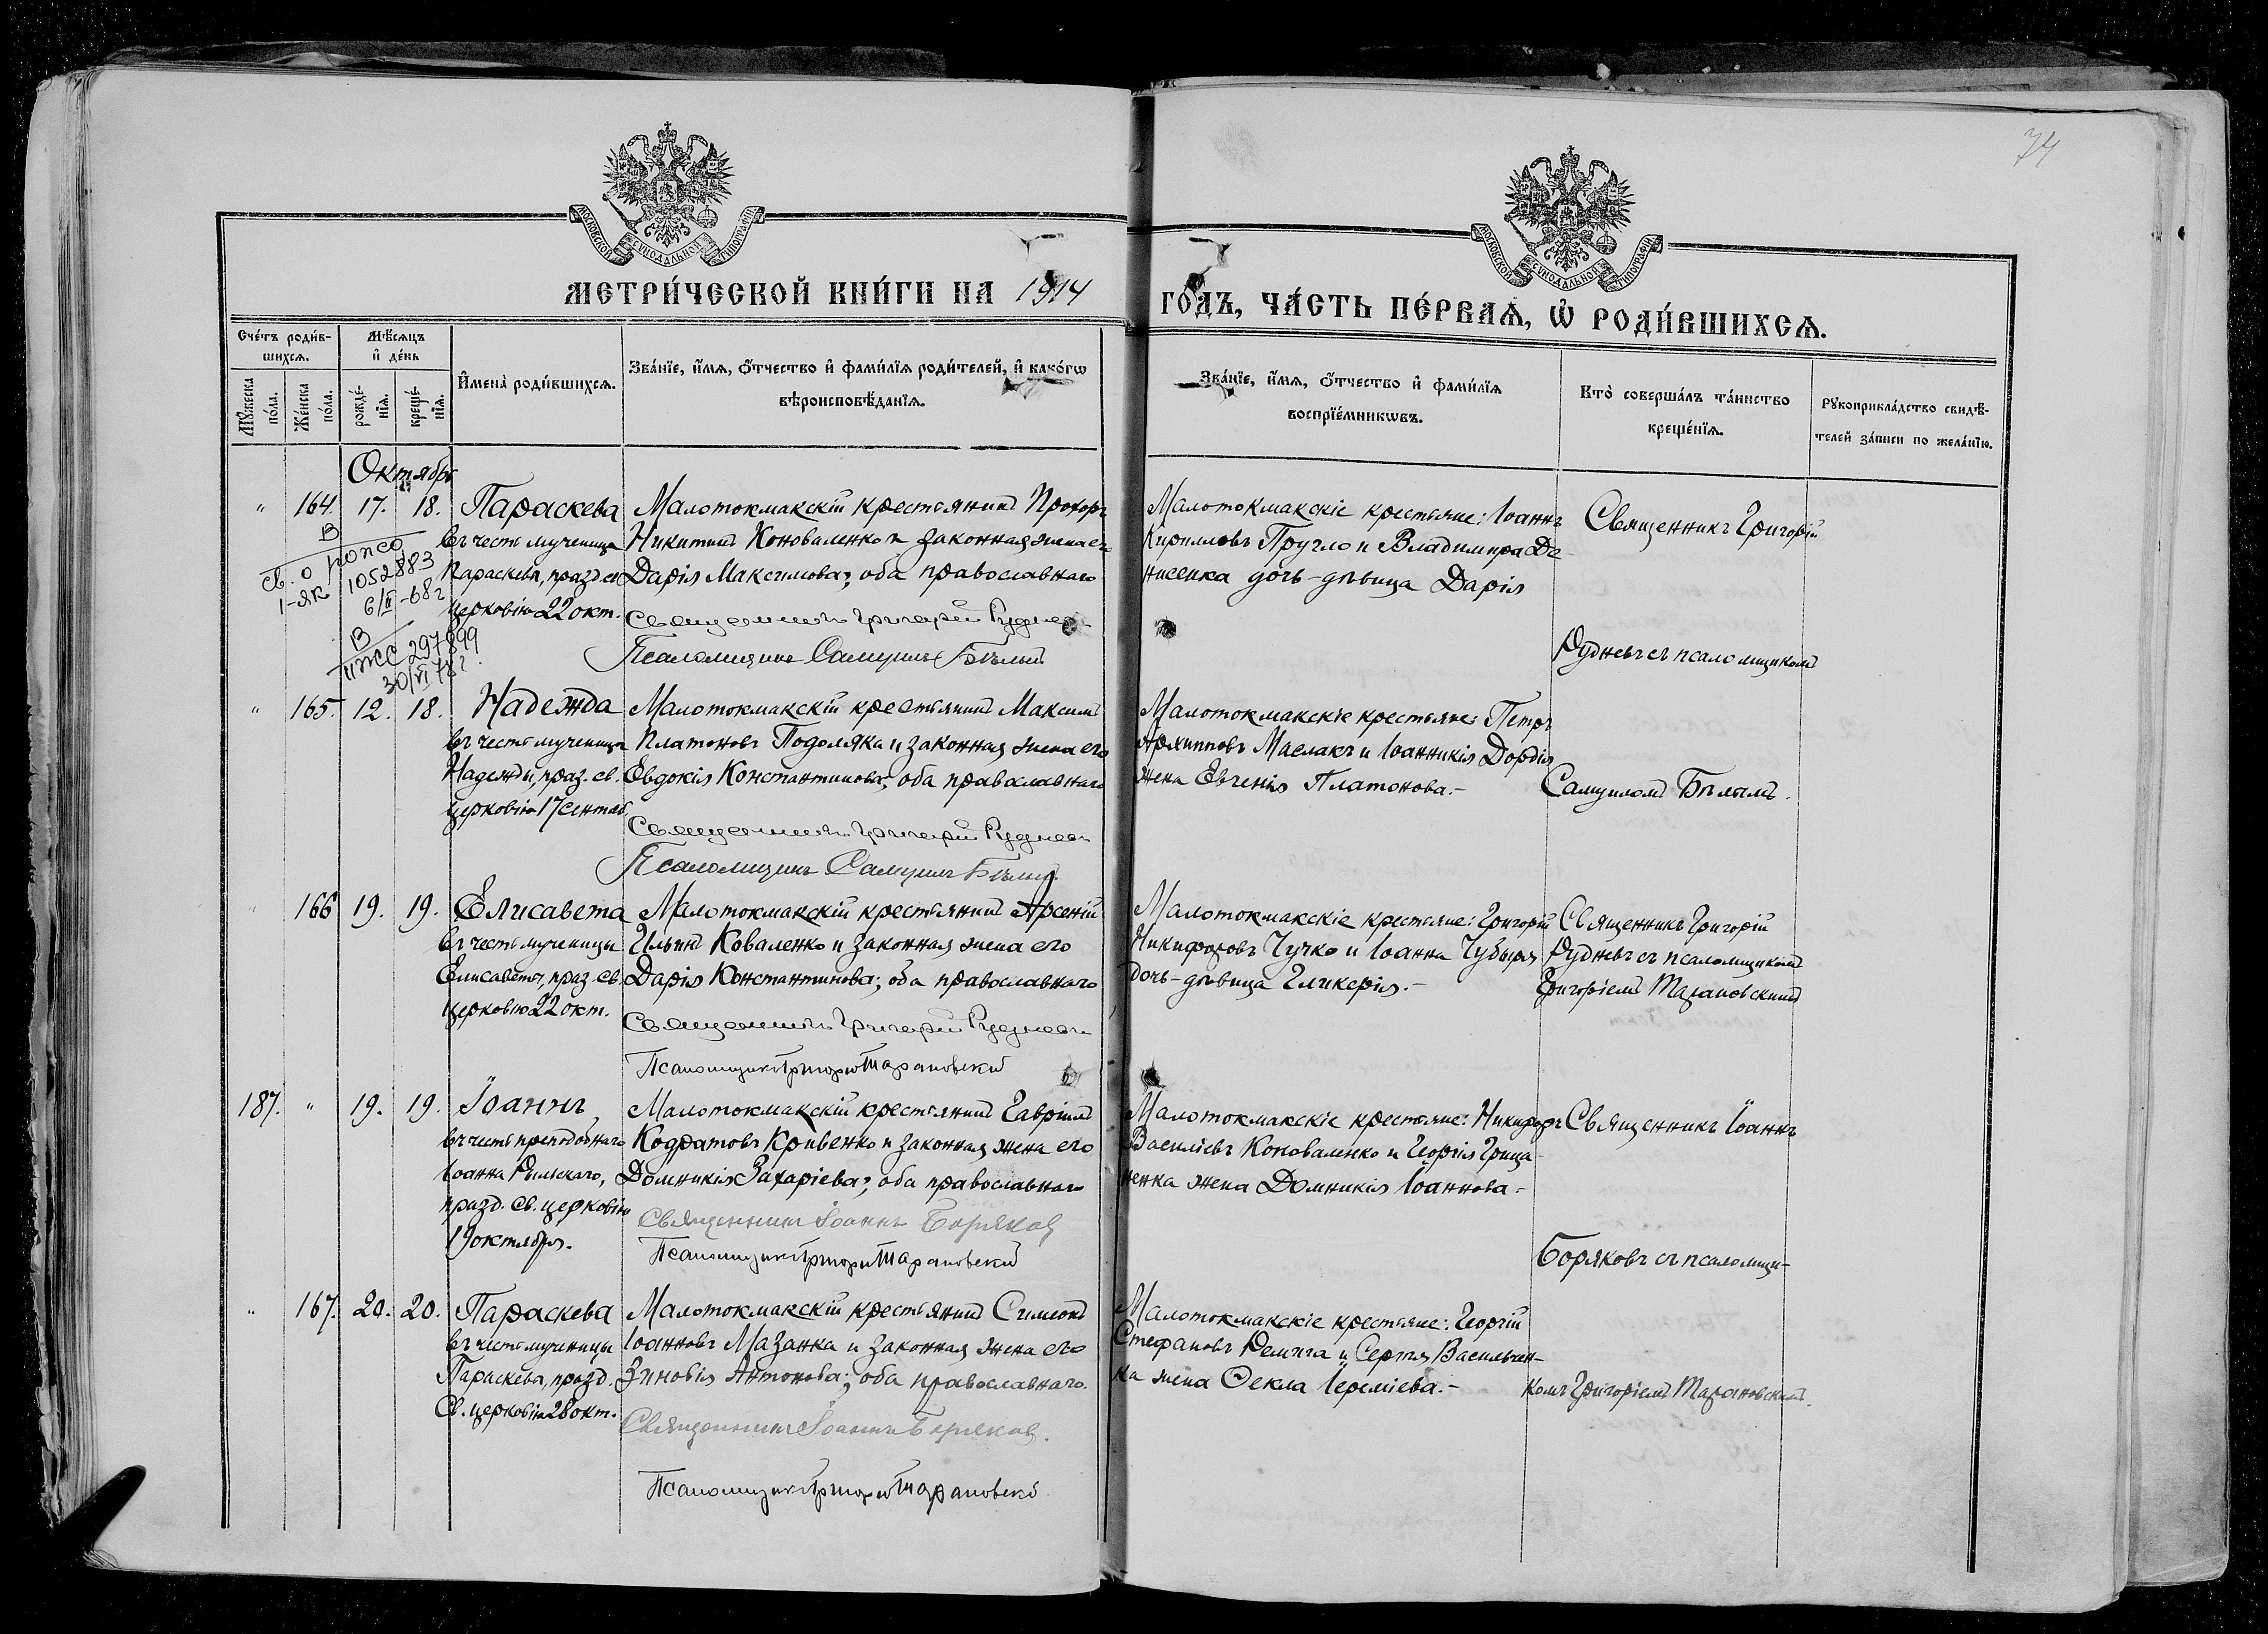 74
МОСКОВСКОЙ СѴНОДАЛЬНОЙ ТИПОГРАФІИ
МОСКОВСКОЙ СѴНОДАЛЬНОЙ ТИПОГРАФІИ
МЕТРИ́ЧЕСКОЙ КНИ́ГИ НА 1914
ГОДЪ, ЧА́СТЬ ПЕ́РВАѦ, Ѡ҆ РОДИ́ВШИХСѦ.
Сче́тъ роди́в-
шихсѧ.
Мѣ́сѧцъ
и҆ де́нь
Мꙋ́жеска
по́ла.
Же́нска
по́ла.
рожде́-
нїѧ.
креще́-
нїѧ.
И҆мена̀ роди́вшихсѧ.
Зва́нїе, и҆́мѧ, ѻ҆́тчество и҆ фами́лїѧ роди́телей, и҆ како́гѡ
вѣроисповѣ́данїѧ.
Зва́нїе, и҆́мѧ, ѻ҆́тчество и҆ фами́лїѧ
воспрїе́мникѡвъ.
Кто̀ соверша́лъ та́инство
креще́нїѧ.
Рꙋкоприкла́дство свидѣ́-
телей за́писи по жела́нїю.
Октябрь
" 164. 17. 18. Параскева
въ честь мученицы
Параскевы, празд. св
церковію 22 окт.
В
св. о рожд
I-ЯК 1052883
6/II-68 г
В
297899
30/VI 78 г.
Малотокмакскій крестьянинъ Прохоръ
Никитинъ Коноваленко и законная жена его
Дарія Максимова; оба православнаго
Священникъ Григорій Рудневъ
Псаломщикъ Самуилъ Бѣлый
Малотокмакскіе крестьяне: Іоаннъ
Кирилловъ Пругло и Владимира Де-
нисенка дочь-дѣвица Дарія
Священникъ Григорій
Рудневъ съ псаломщикомъ
" 165. 12. 18. Надежда
въ честь мученицы
Надежды, праз. св.
церковію 17 сентяб.
Малотокмакскій крестьянинъ Максимъ
Платоновъ Подоляка и законная жена его
Евдокія Константинова; оба православнаго
Священникъ Григорій Рудневъ
Псаломщикъ Самуилъ Бѣлый
Малотокмакскіе крестьяне: Петръ
Архипповъ Маслакъ и Іоанникія Дордія
жена Евгенія Платонова.-
Самуиломъ Бѣлымъ.
" 166 19. 19. Елисавета
въ честь мученицы
Елисаветы, праз. св.
церковію 22 окт.
Малотокмакскій крестьянинъ Арсеній
Ильинъ Коваленко и законная жена его
Дарія Константинова; оба православнаго
Священникъ Григорій Рудневъ
Псаломщикъ Григорій Тарановскій
Малотокмакскіе крестьяне: Григорій
Никифоровъ Чучко и Іоанна Чубыря
дочь-дѣвица Гликерія.-
Священникъ Григорій
Рудневъ съ псаломщикомъ
Григоріемъ Тарановскимъ
187. " 19. 19. Іоаннъ
въ честь преподобнаго
Іоанна Рыльскаго,
празд. св. церковію
19 октября.
Малотокмакскій крестьянинъ Гавріилъ
Кодратовъ Кривенко и законная жена его
Домникія Захаріева; оба православнаго
Священникъ Іоаннъ Боряковъ
Псаломщикъ Григорій Тарановскій
Малотокмакскіе крестьяне: Никифоръ
Василіевъ Коноваленко и Георгія Грица-
ненка жена Домникія Іоаннова-
Священникъ Іоаннъ
Боряковъ съ псаломщи-
" 167. 20. 20. Параскева
въ честь мученицы
Параскевы, празд.
св. церковію 28 окт.
Малотокмакскій крестьянинъ Симеонъ
Іоанновъ Мазанка и законная жена его
Зиновія Антонова; оба православнаго.
Священникъ Іоаннъ Боряковъ.
Псаломщикъ Григорій Тарановскій
Малотокмакскіе крестьяне: Георгій
Стефановъ Ремига и Сергія Васильчен-
ка жена Ѳекла Іереміева.-
комъ Григоріемъ Тарановскимъ.